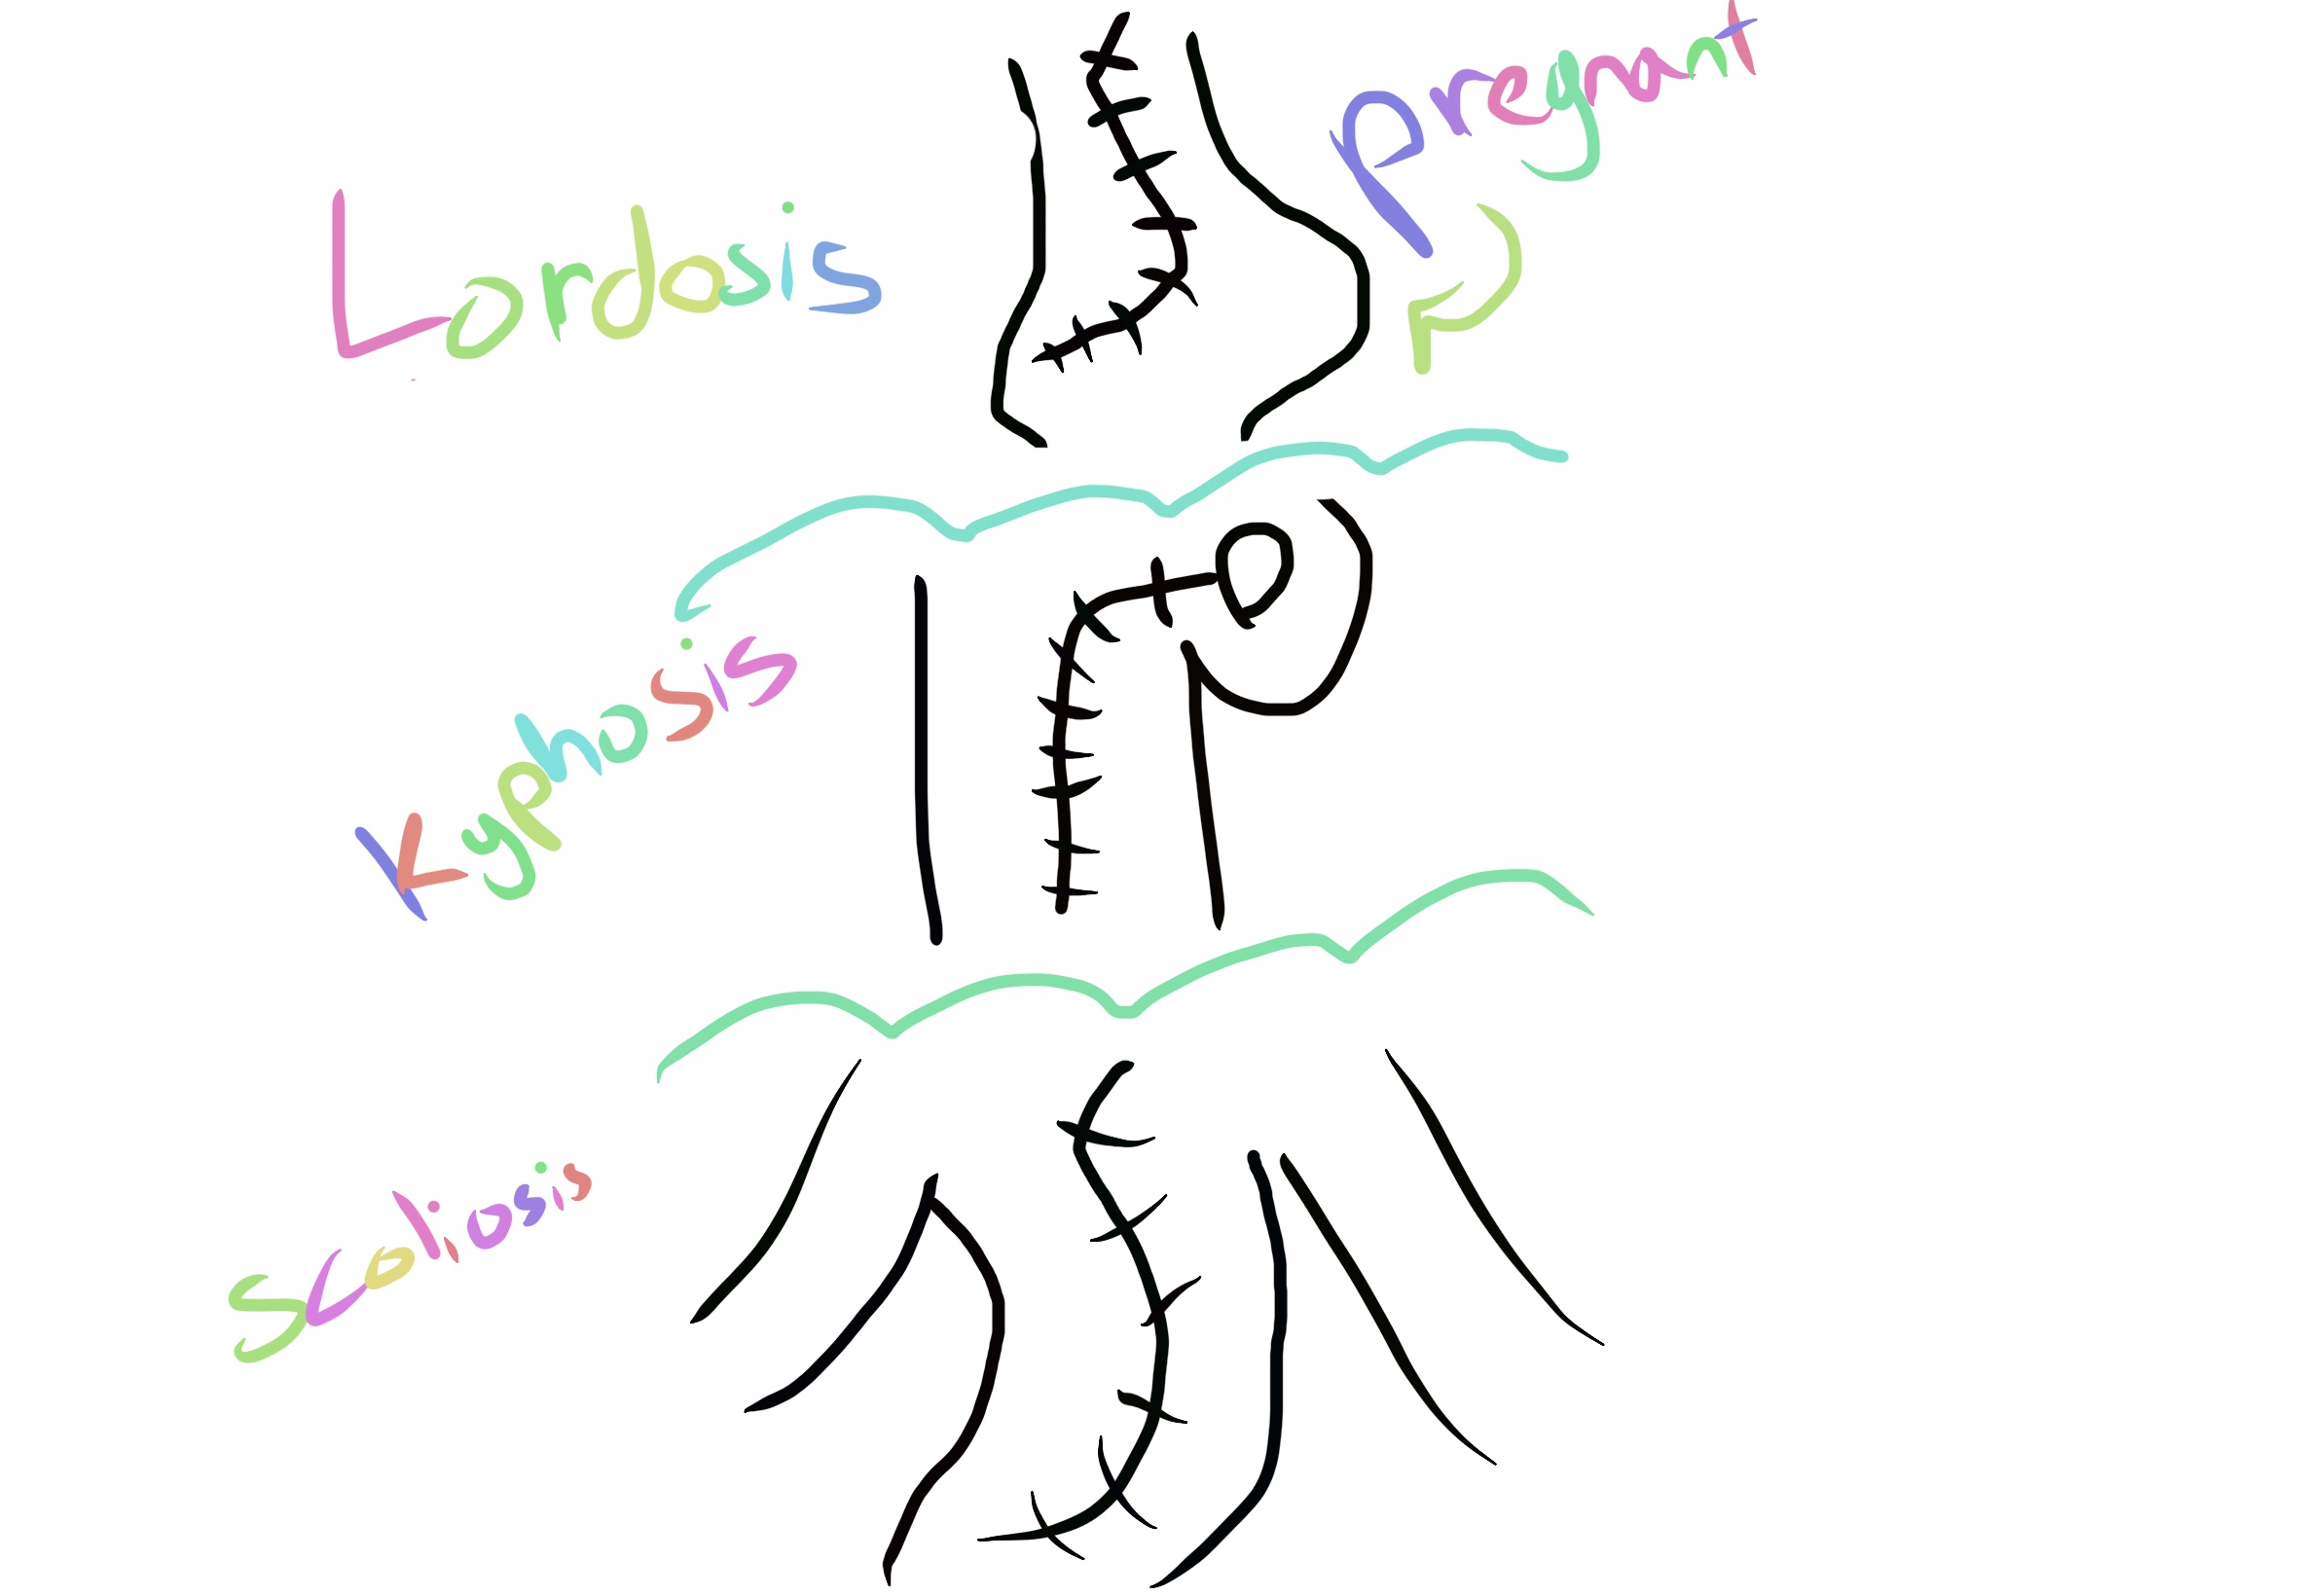 Lordosis
Pregnant
Kyphosis
Scoliosis